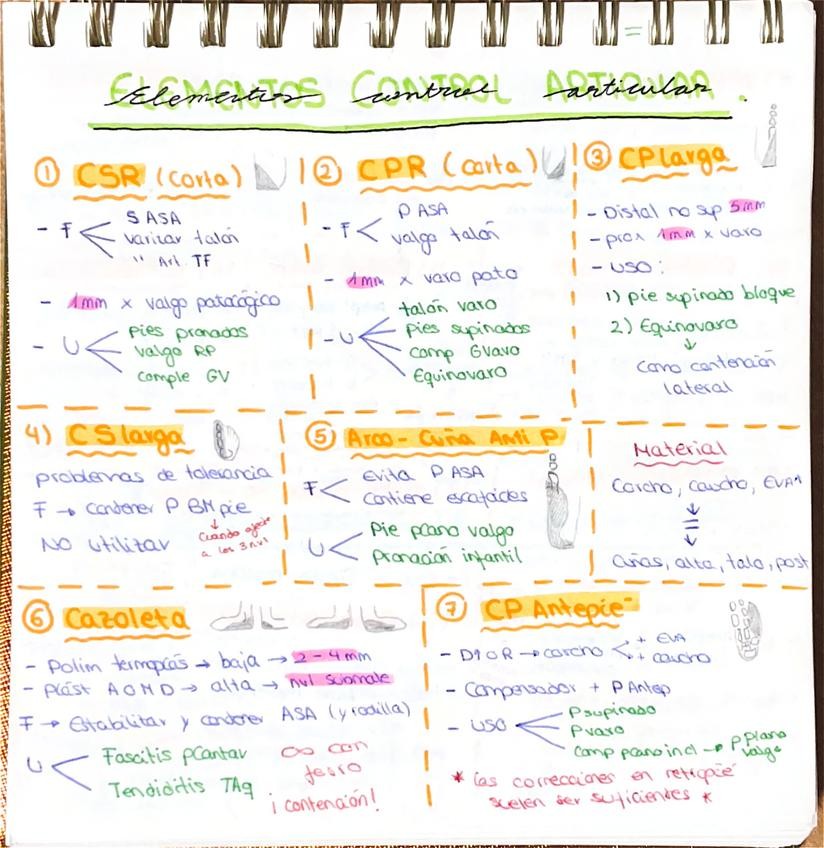 ELEMENTOS CONTROL ARTICULAR.
Elementos control articular
① CSR (corta)
- F
S ASA
varizar talón
" Art. TF
- 1mm x valgo patológico
- U
Pies pronados
valgo RP
comple GV
② CPR (corta)
- F
P ASA
valgo talón
- 1mm x varo pato
- U
talón varo
Pies supinados
comp GVavo
Equinovaro
③ CP larga
- Distal no sup 5mm
- prox 1mm x varo
- USO:
1) pie supinado bloque
2) Equinovaro
↓
Como contención
lateral
4) CS larga
problemas de tolerancia
F → contener P BM pie
NO utilizar
↓
Cuando afecte
a los 3 nvl
⑤ Arco - Cuña Anti P
F
Evita P ASA
Contiene escafoides
U
Pie plano valgo
Pronación infantil
Material
Corcho, caucho, EVA
↓
=
↓
Cuñas, alta, talo, post
⑥ Cazoleta
- Polim termoplás → baja → 2-4mm
- Plást AOMD → alta → nvl
F → Estabilizar y contener ASA (y rodilla)
U
Fascitis plantar
Tendiditis TAq
∞ con
fesro
¡contención!
⑦ CP Antepie
- D1OR → corcho
+ EVA
+ caucho
- Compensador + P Antep
- USO
P supinado
P varo
Comp plano incl → P. plano
valgo
* Las correcciones en retropie
suelen ser suficientes *